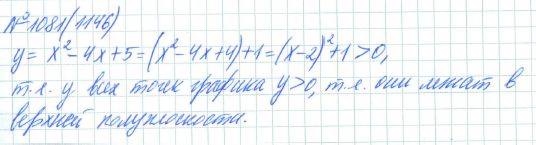 № 1081(1146)
y = x² - 4x + 5 = (x² - 4x + 4) + 1 = (x - 2)² + 1 > 0,
т.е. у всех точек графика y > 0, т.е. они лежат в
верхней полуплоскости.